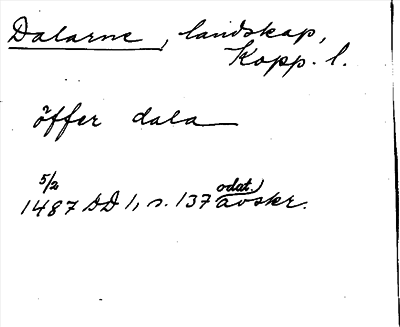 Dalarne, landskap,
Kopp. l.
öffer dala
5/2
odat.)
1487 DD 1, s. 137 avskr.